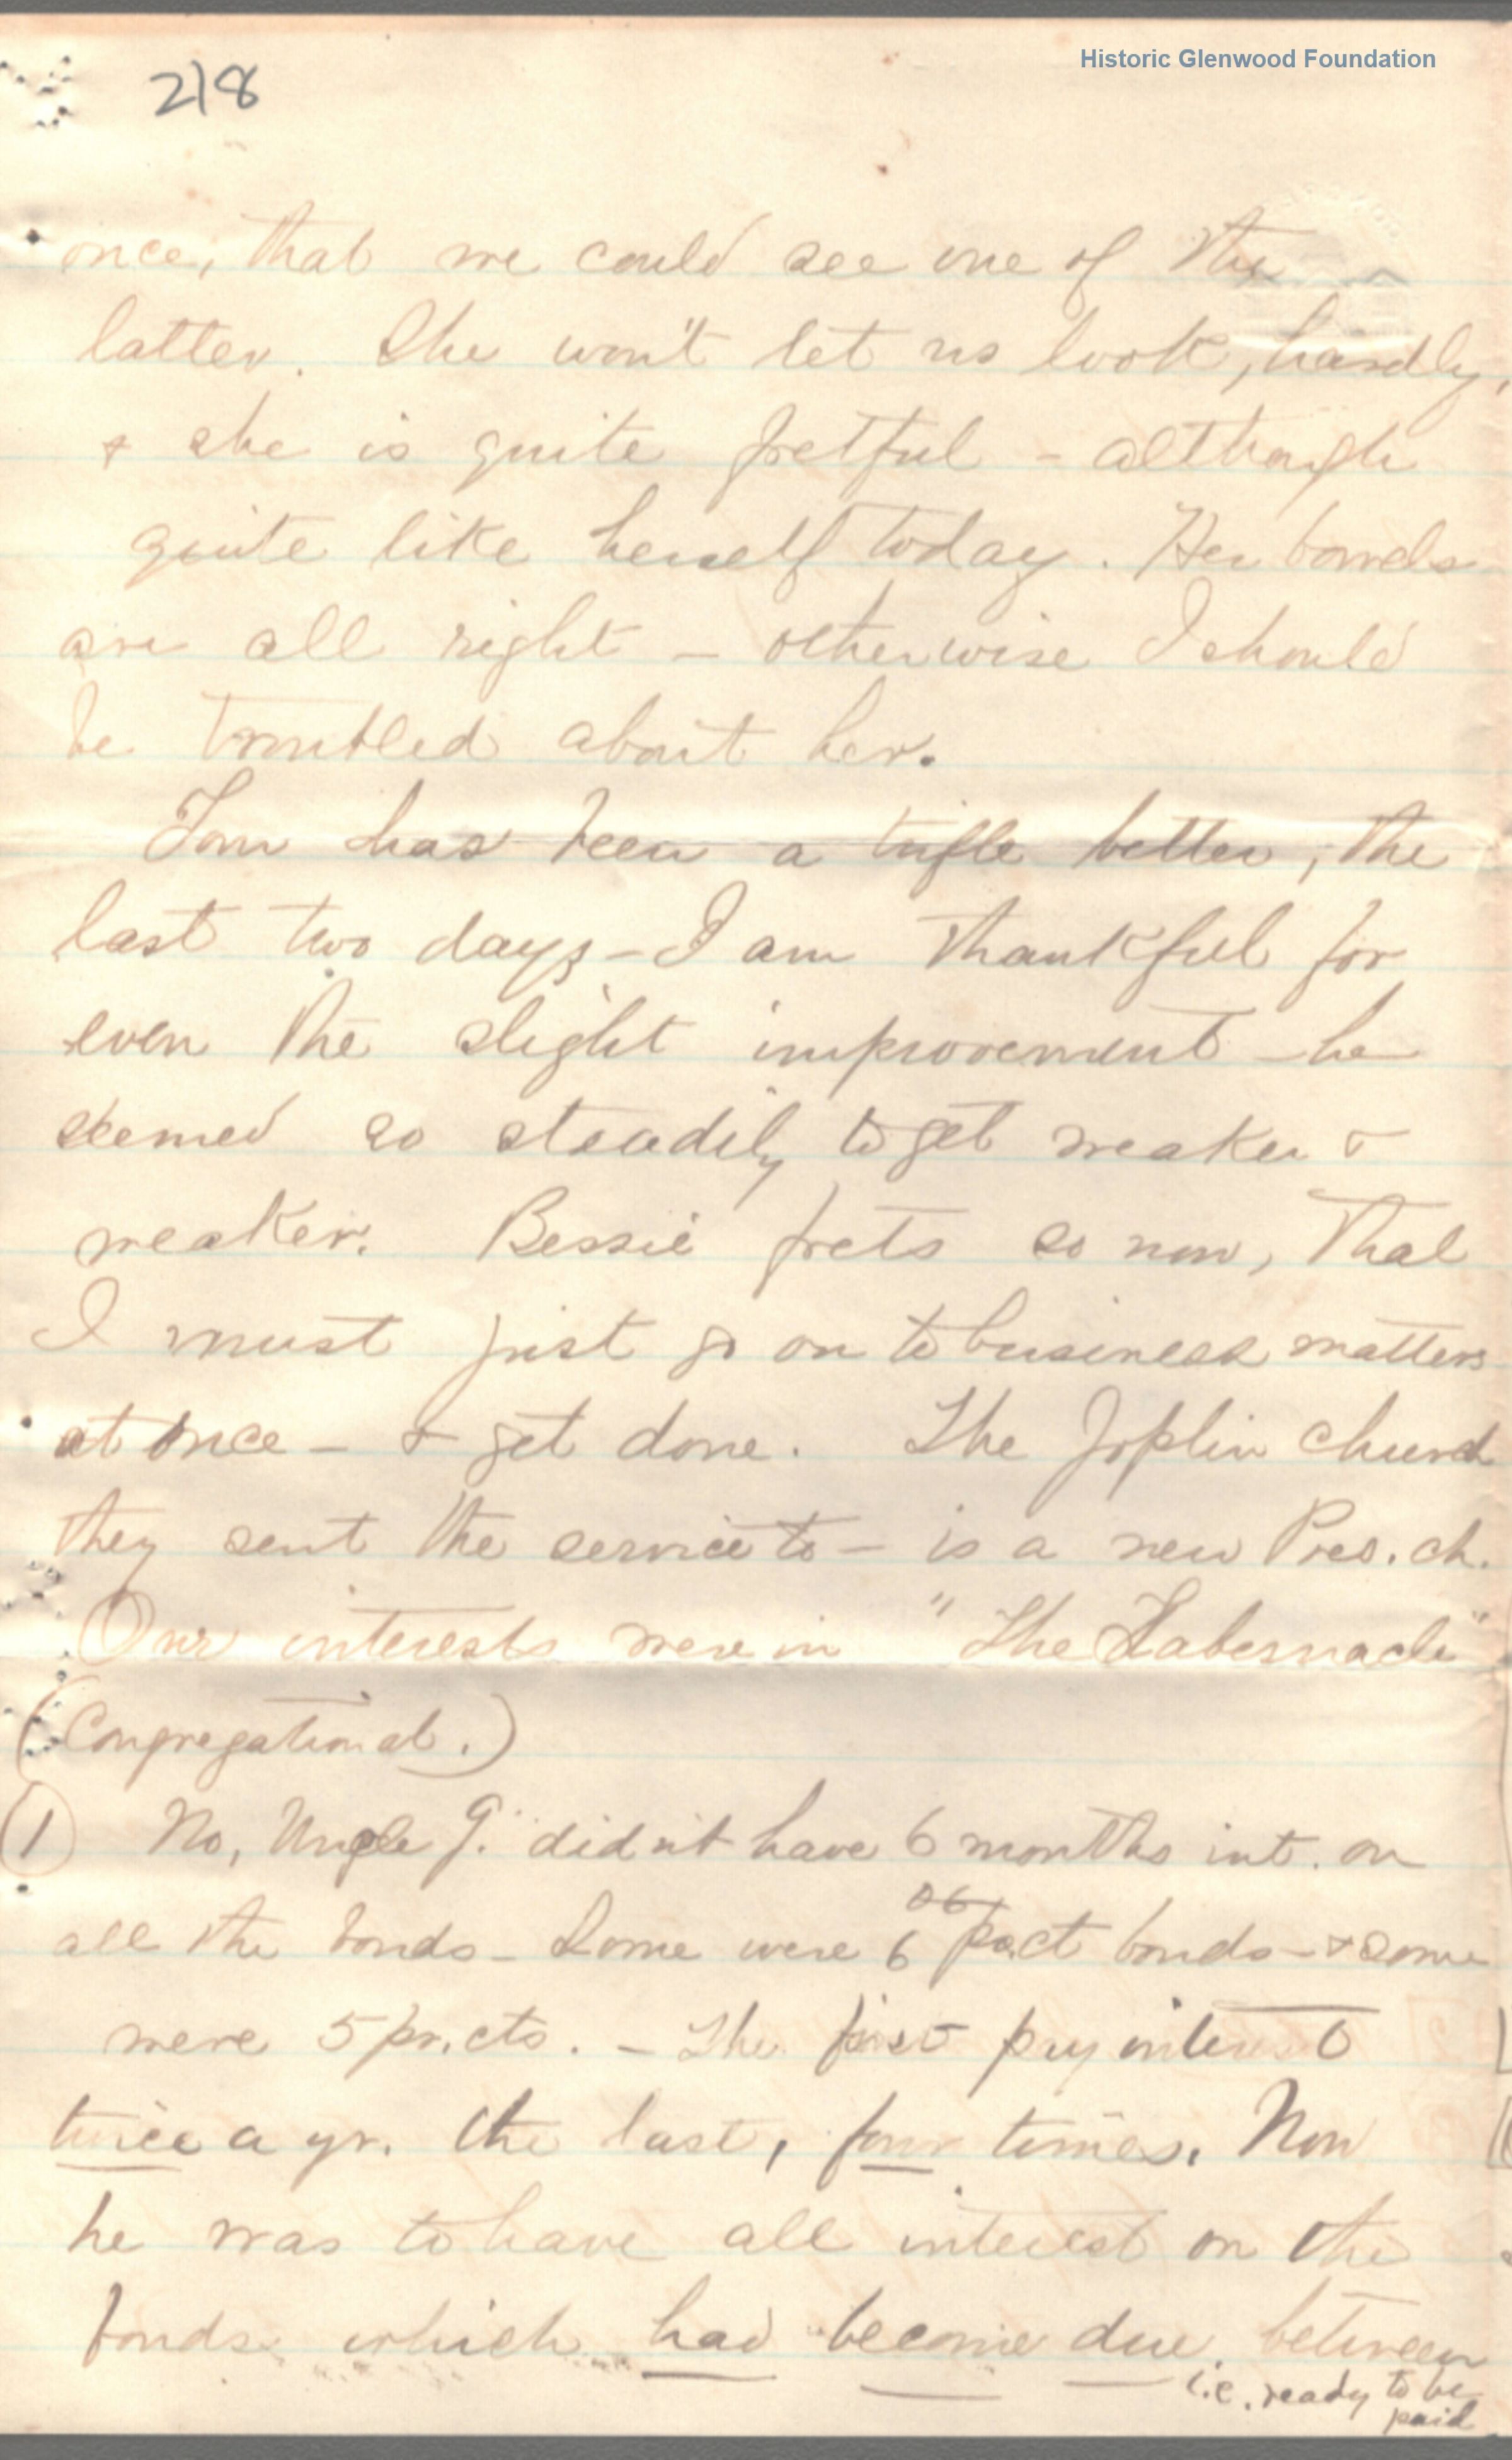 Historic Glenwood Foundation
218
once, that we could see one of the
latter. She won't let us look, hardly,
& she is quite fretful - although
quite like herself today. Her bowels
are all right - otherwise I should
be troubled about her.
Tom has been a trifle better, the
last two days - I am thankful for
even the slight improvement - he
seemed so steadily to get weaker &
weaker. Bessie frets so now, that
I must just go on to business matters
at once - & get done. The Joplin church
they sent the service to - is a new Pres. ch.
Our interests were in "The Tabernacle"
(Congregational.)
1 No, Uncle G. didn't have 6 months int. on
all the bonds - Some were 6 pr. ct bonds - & some
were 5 pr. cts. - The first pay interest
twice a yr. the last, four times. Now
he was to have all interest on the
bonds which had become due between
i.e. ready to be
paid